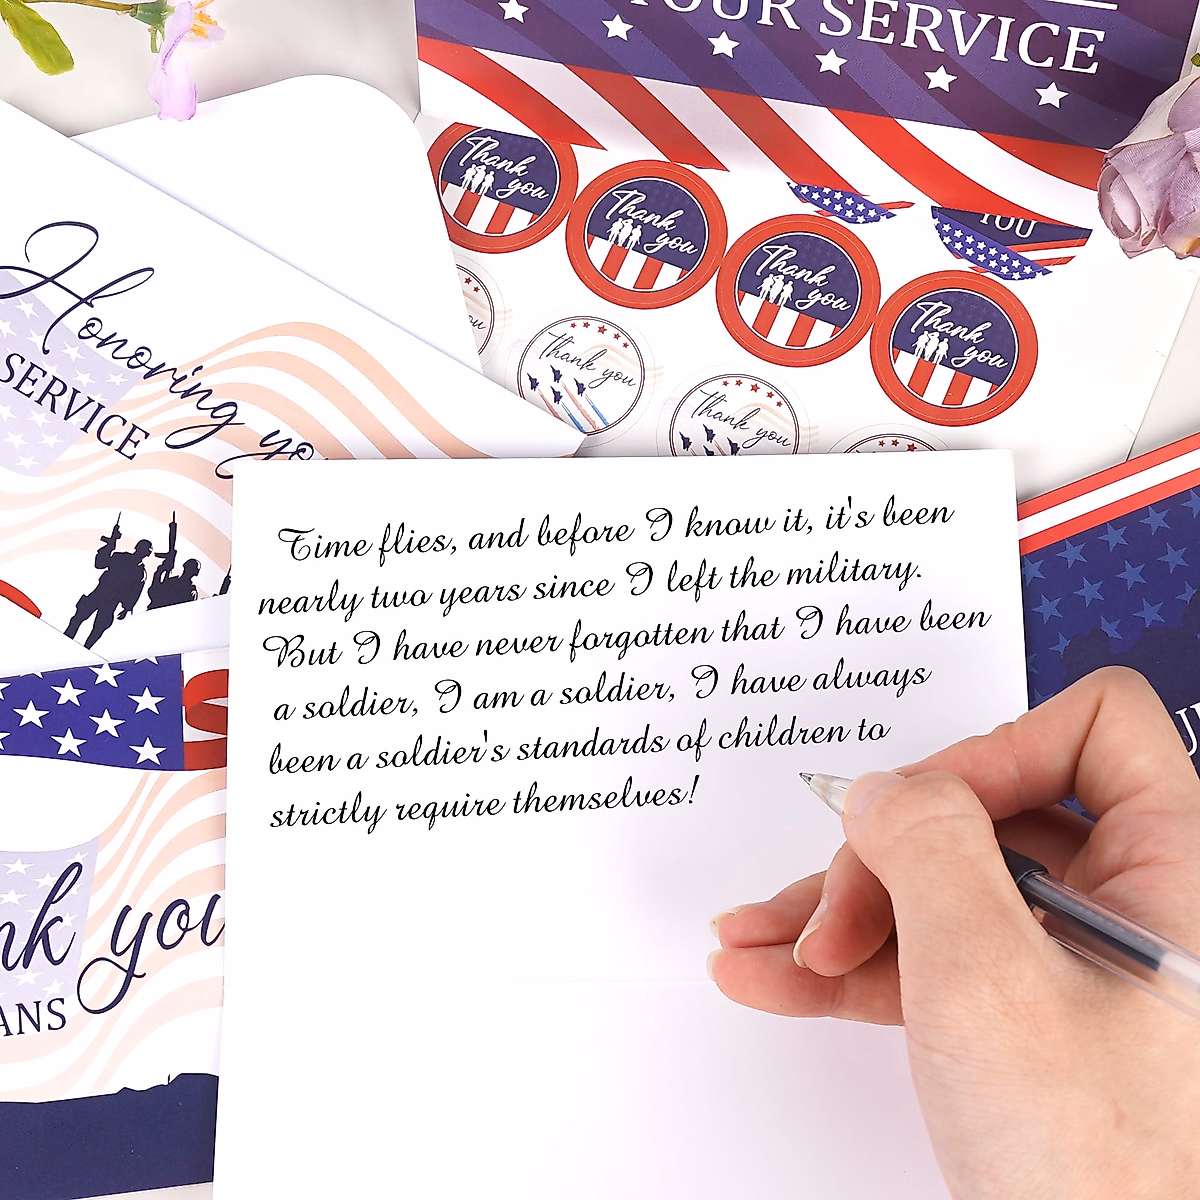 YOUR SERVICE
Thank you
Thank you
Thank you
Thank you
YOU
you
Thank you
Thank you
Honoring you
SERVICE
Time flies, and before I know it, it's been
nearly two years since I left the military.
But I have never forgotten that I have been
a soldier, I am a soldier, I have always
been a soldier's standards of children to
strictly require themselves!
nk you
ANS